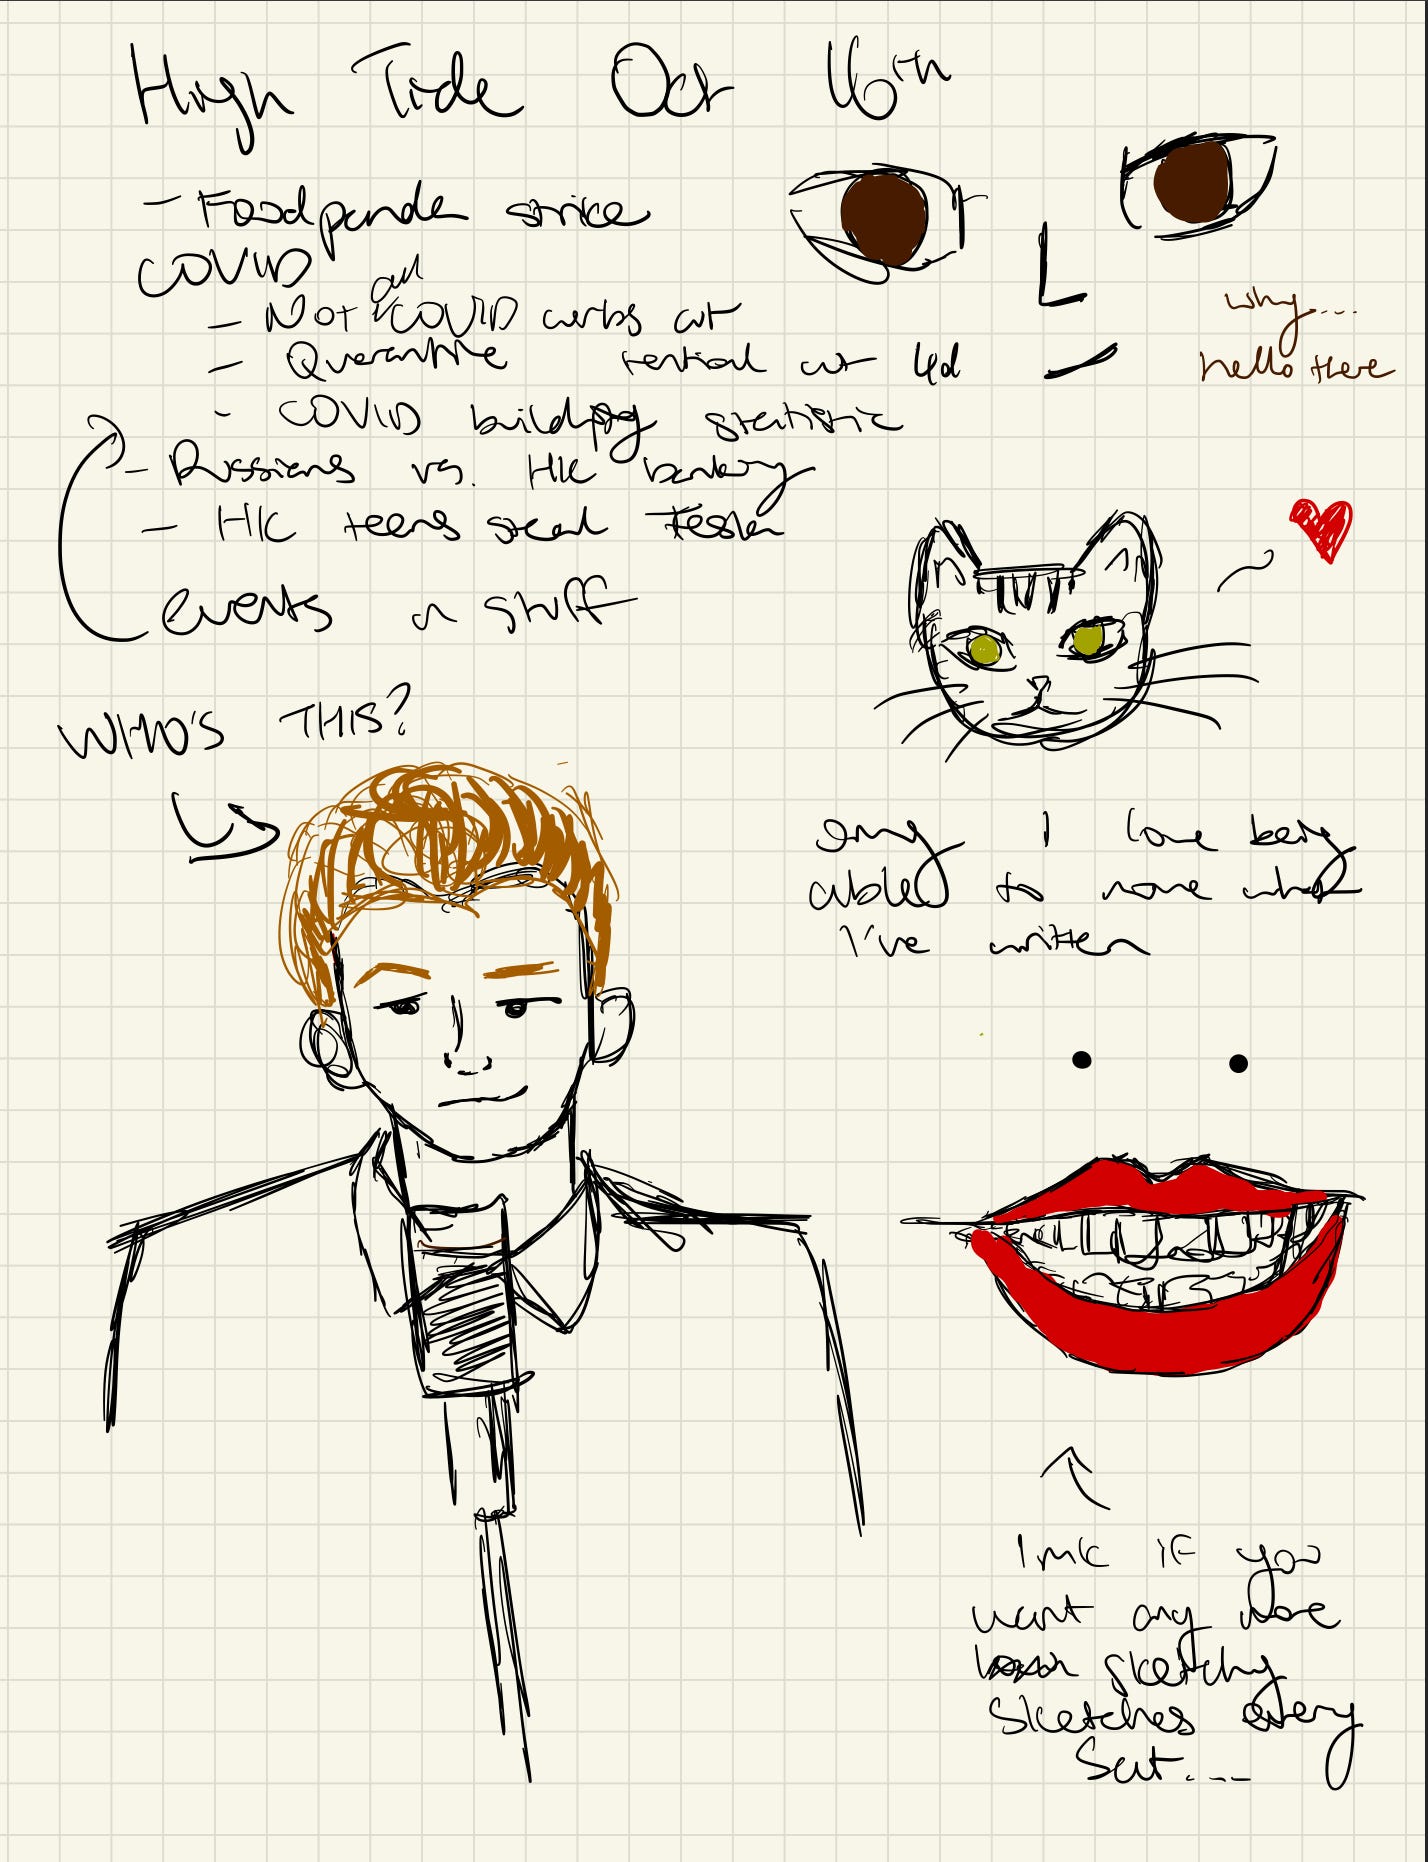 High Tide Oct 16th
- Foodpanda strike
COVID
- Not all COVID curbs cut
- Quarantine cut 4d
- COVID building statistic
- Russians vs. HK banking
- HK teens steal Tesla
events n stuff
why...
hello there
WHO'S THIS?
omg I love being
abled to move what
I've written
lmk if you
want any more
sketchy
sketches every
Sat...